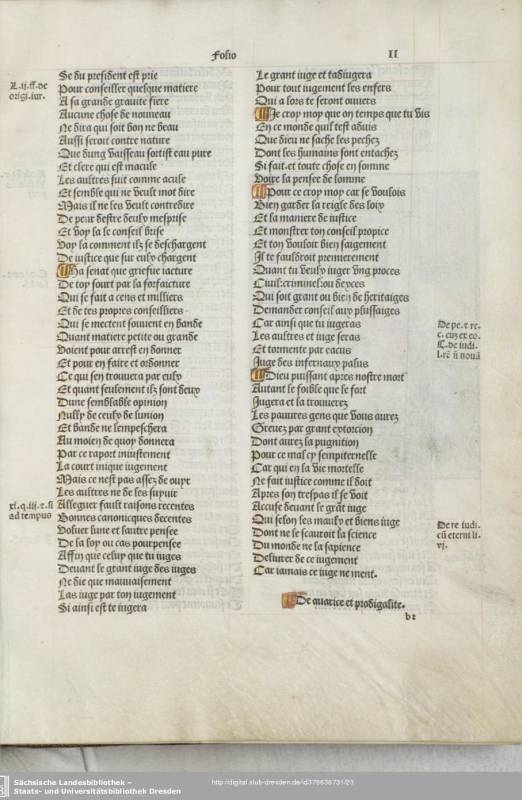 Folio II
L.ij.ff.de
origi.iur.
Se du president est prie
Pour conseiller quelque matiere
A sa grande gravite fiere
Aucune chose de nouueau
Ne dira qui soit bon ne beau
Aussi seroit contre nature
Que dung vaisseau sortist eau pure
Et clere qui est macule
Les aultres suit comme acule
Et semble qui ne veult mot dire
Mais il ne les veult contredire
De peur destre deulx mesprise
Et voy la le conseil brise
Voy la comment ilz se deschargent
De iustice que sur eulx chargent
Ha senat que griefue iacture
De toy sourt par la forfaicture
Qui se fait a cens et milliers
Et de tes propres conseilliers
Qui se mectent souuent en bande
Quant matiere petite ou grande
Voient pour arrest en donner
Et pour en faire et ordonner
Ce qui sen trouuera par eulx
Et quant seulement ilz sont deux
Dune semblable opinion
Nully de ceulx de lunion
Et bande ne lempeschera
Au moien de quoy donnera
Par ce raport iniustement
La court inique iugement
Mais ce nest pas assez de ouyr
Les aultres ne de les suyuir
xi.q.iij.c.si
ad tempus
Alleguer fault raisons recentes
Bonnes canonicques decentes
Voluer lune et lautre pensee
De la loy ou cas pourpensee
Affin que celuy que tu iuges
Deuant le grant iuge des iuges
Ne die que mauuaisement
Las iuge par ton iugement
Si ainsi est te iugera
Le grant iuge et tadiugera
Pour tout iugement les enfers
Qui a lors te seront ouuers
Je croy moy que on temps que tu vis
En ce monde quil test aduis
Que dieu ne sache les pechez
Dont les humains sont entachez
Si fait.et toute chose en somme
Voire la pensee de lomme
Pour ce croy moy car se voulois
Bien garder la reigle des loix
Et la maniere de iustice
Et monstrer ton conseil propice
Et ton vouloir bien saigement
Il te fauldroit premierement
Quant tu veulx iuger vng proces
Ciuil:criminel:ou dexces
Qui soit grant ou bien de heritaiges
Demander conseil aux plussaiges
De pe.
C.de iudi.
Car ainsi que tu iugeras
Les aultres et iuge seras
Et tormente par eacus
Juge des infernaux palus
Dieu puissant apres nostre mort
Autant le foible que le fort
Jugera et la trouuerez
Les pauures gens que vous aurez
Greuez par grant extorcion
Dont aurez la pugnition
Pour ce mal cy sempiternelle
Car qui en la vie mortelle
Ne fait iustice comme il doit
Apres son trespas il se voit
Accuse deuant le grãt iuge
Qui selon ses maulx et biens iuge
De re iudi.
cũ eterni li.
vj.
Dont ne le scauroit la science
Du monde ne la sapience
Deliurer de ce iugement
Car iamais ce iuge ne ment.
De auarice et prodigalite.
Sächsische Landesbibliothek –
Staats- und Universitätsbibliothek Dresden
http://digital.slub-dresden.de/id376636731/23